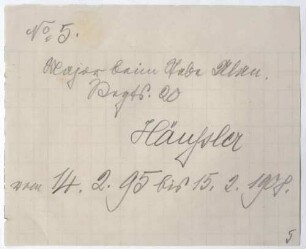 No 5.
Major beim Stabe Ulan.
Regts. 20
Häußler
vom 14. 2. 95 bis 15. 2. 1908.
5